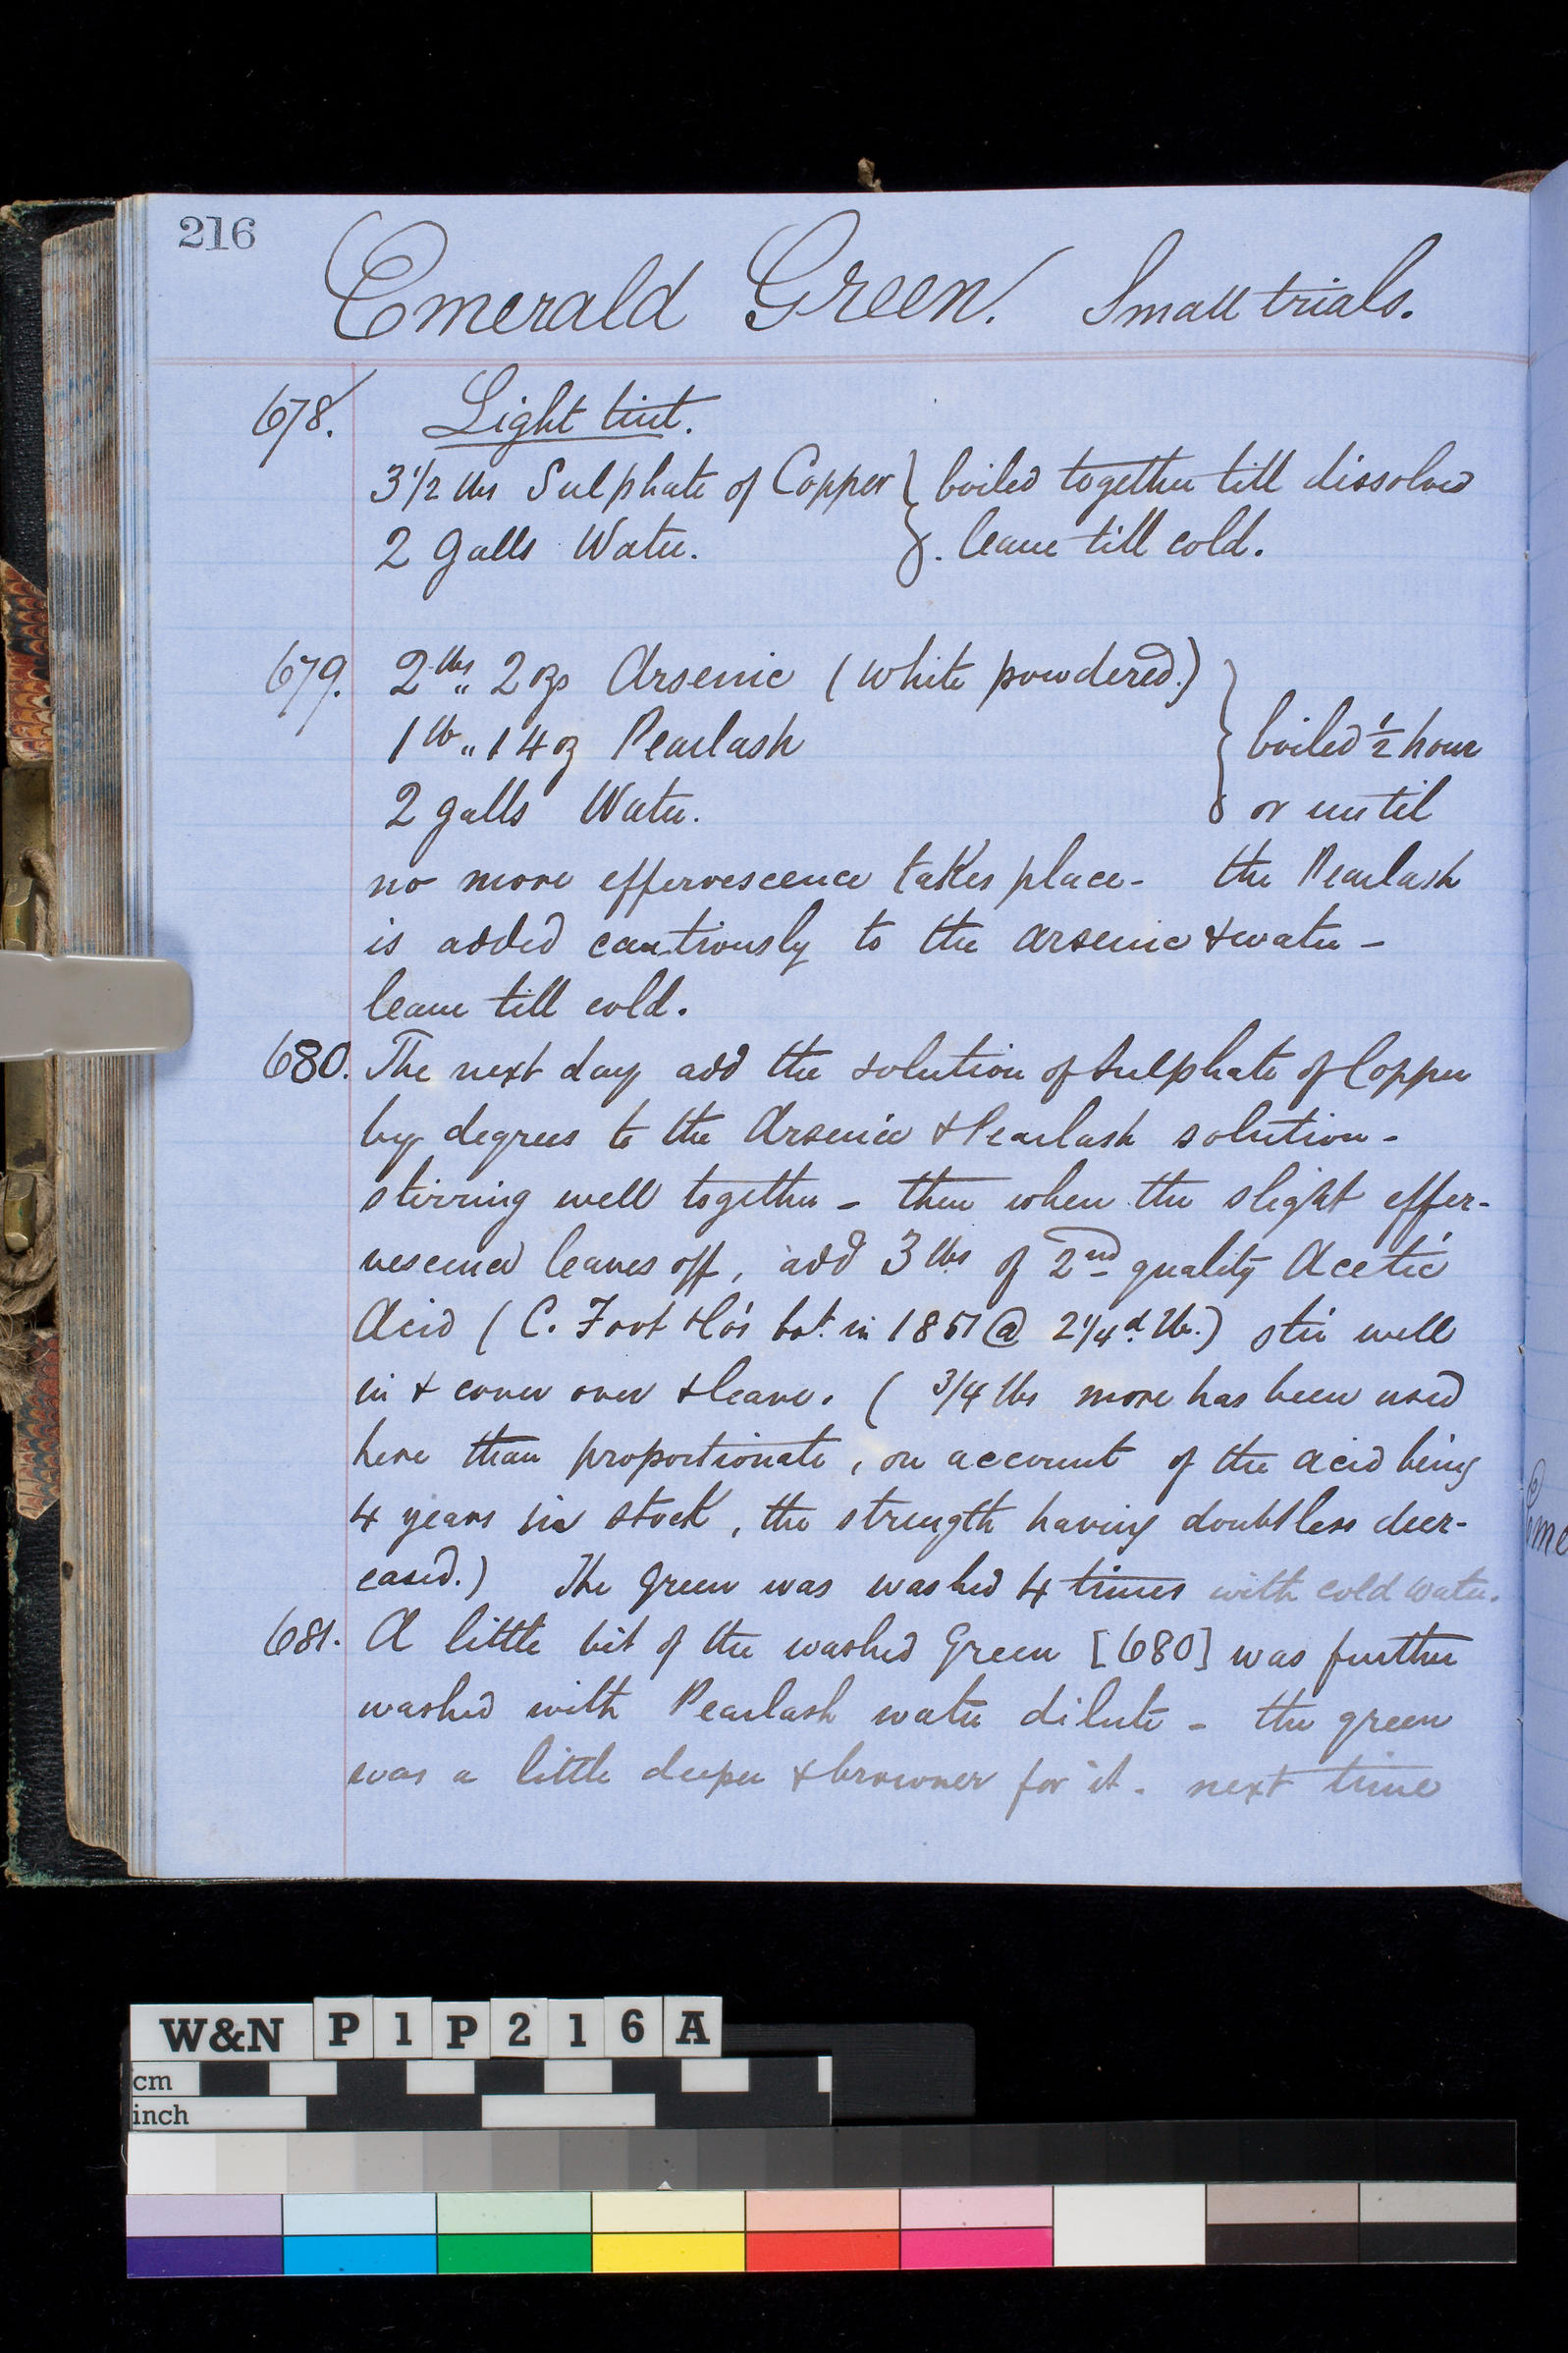 216
Emerald Green. Small trials.
678. Light tint.
3 1/2 lbs Sulphate of Copper } boiled together till dissolved
2 Galls Water. } . leave till cold.
679. 2 lbs „ 2 ozs Arsenic (White powdered.)
1 lb „ 14 oz Pearlash } boiled ½ hour
2 galls Water. } or until
no more effervescence takes place - the Pearlash
is added cautiously to the arsenic & water -
leave till cold.
680. The next day add the solution of Sulphate of Copper
by degrees to the Arsenic & Pearlash solution -
stirring well together - then when the slight effer-
vescence leaves off, add 3 lbs of 2nd quality Acetic
Acid (C. Foot & Co's bot. in 1851 @ 2 1/4 d. lb.) stir well
in & cover over & leave. ( 3/4 lbs more has been used
here than proportionate, on account of the acid being
4 years in stock, the strength having doubtless decr-
eased.) The Green was washed 4 times with cold water.
681. A little bit of the washed Green [680] was further
washed with Pearlash water dilute - the green
was a little deeper & browner for it - next time
W&N P1P216A
cm
inch